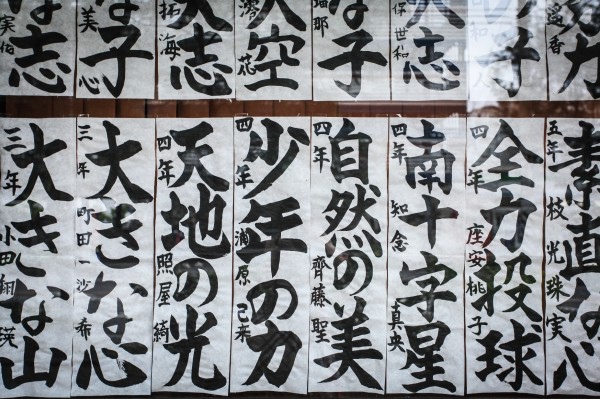 力
遥香
子
大志
な子
大空
大志
拓海
な子
美心
な志
素直な心
五年 枝光珠実
全力投球
四年 座安桃子
南十字星
四年 知念真央
自然の美
四年 齊藤聖
少年の力
四年
天地の光
四年 照屋綺
大きな心
三年 町田一沙希
大きな山
三年 小田翔瑛